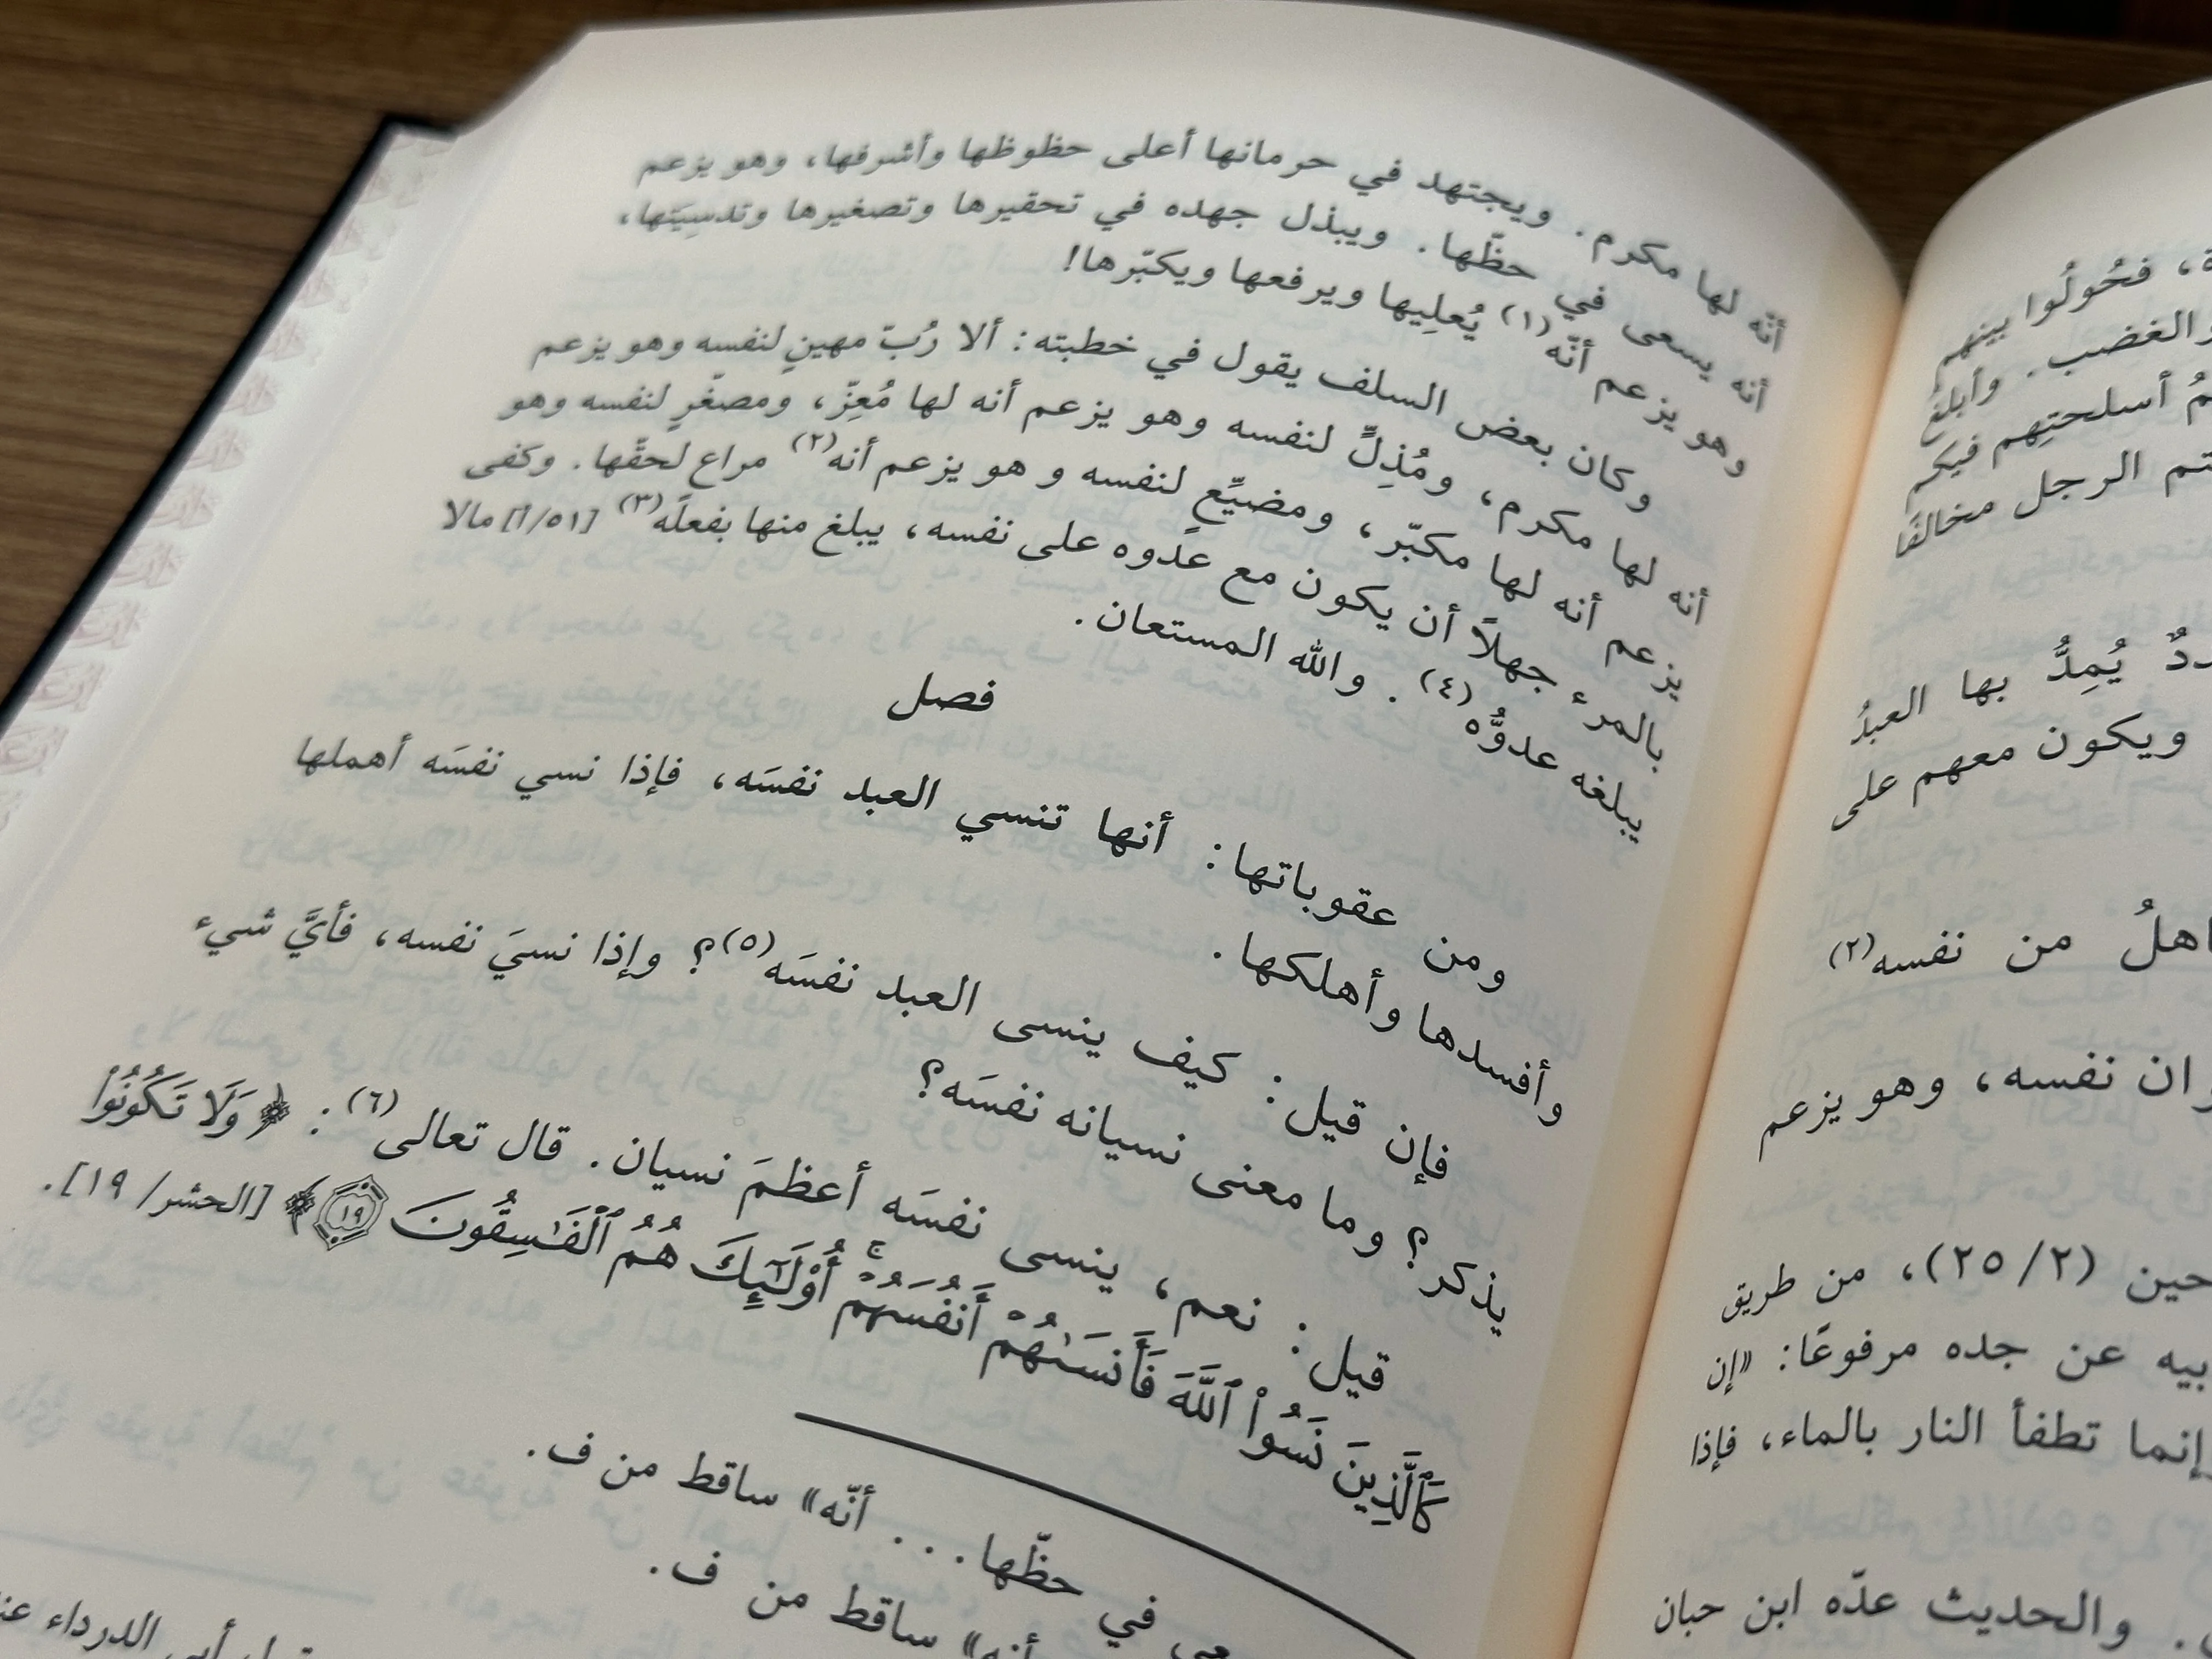 ة، فحُولُوا بينهم
والغضب. وأبلغ
أسلحتِهم فيكم
الرجل مخالفًا
يُمِدُّ بها العبدُ
ويكون معهم على
من نفسه(٢)
نفسه، وهو يزعم
(٢/ ٢٥)، من طريق
عن جده مرفوعًا: «إن
إنما تطفأ النار بالماء، فإذا
والحديث عدّه ابن حبان
أنّه لها مكرم. ويجتهد في حرمانها أعلى حظوظها وأشرفها، وهو يزعم
أنه يسعى في حظّها. ويبذل جهده في تحقيرها وتصغيرها وتدسِيَتها،
وهو يزعم أنّه(١) يُعلِيها ويرفعها ويكبّرها!
وكان بعض السلف يقول في خطبته: ألا رُبّ مهينٍ لنفسه وهو يزعم
أنه لها مكرم، ومُذِلٍّ لنفسه وهو يزعم أنه لها مُعِزّ، ومصغّرٍ لنفسه وهو
يزعم أنه لها مكبّر، ومضيِّعٍ لنفسه و هو يزعم أنه(٢) مراع لحقّها. وكفى
بالمرء جهلاً أن يكون مع عدوه على نفسه، يبلغ منها بفعله(٣) [٥١/أ] مالا
يبلغه عدوُّه(٤). والله المستعان.
فصل
ومن عقوباتها: أنها تنسي العبد نفسَه، فإذا نسي نفسَه أهملها
وأفسدها وأهلكها.
فإن قيل: كيف ينسى العبد نفسَه(٥)؟ وإذا نسيَ نفسه، فأيَّ شيء
يذكر؟ وما معنى نسيانه نفسَه؟
قيل: نعم، ينسى نفسَه أعظمَ نسيان. قال تعالى(٦): ﴿وَلَا تَكُونُوا۟
كَٱلَّذِينَ نَسُوا۟ ٱللَّهَ فَأَنسَىٰهُمْ أَنفُسَهُمْ ۚ أُو۟لَـٰٓئِكَ هُمُ ٱلْفَـٰسِقُونَ ١٩﴾ [الحشر/ ١٩].
في حظّها... أنّه» ساقط من ف.
أنه» ساقط من ف.
أبي الدرداء